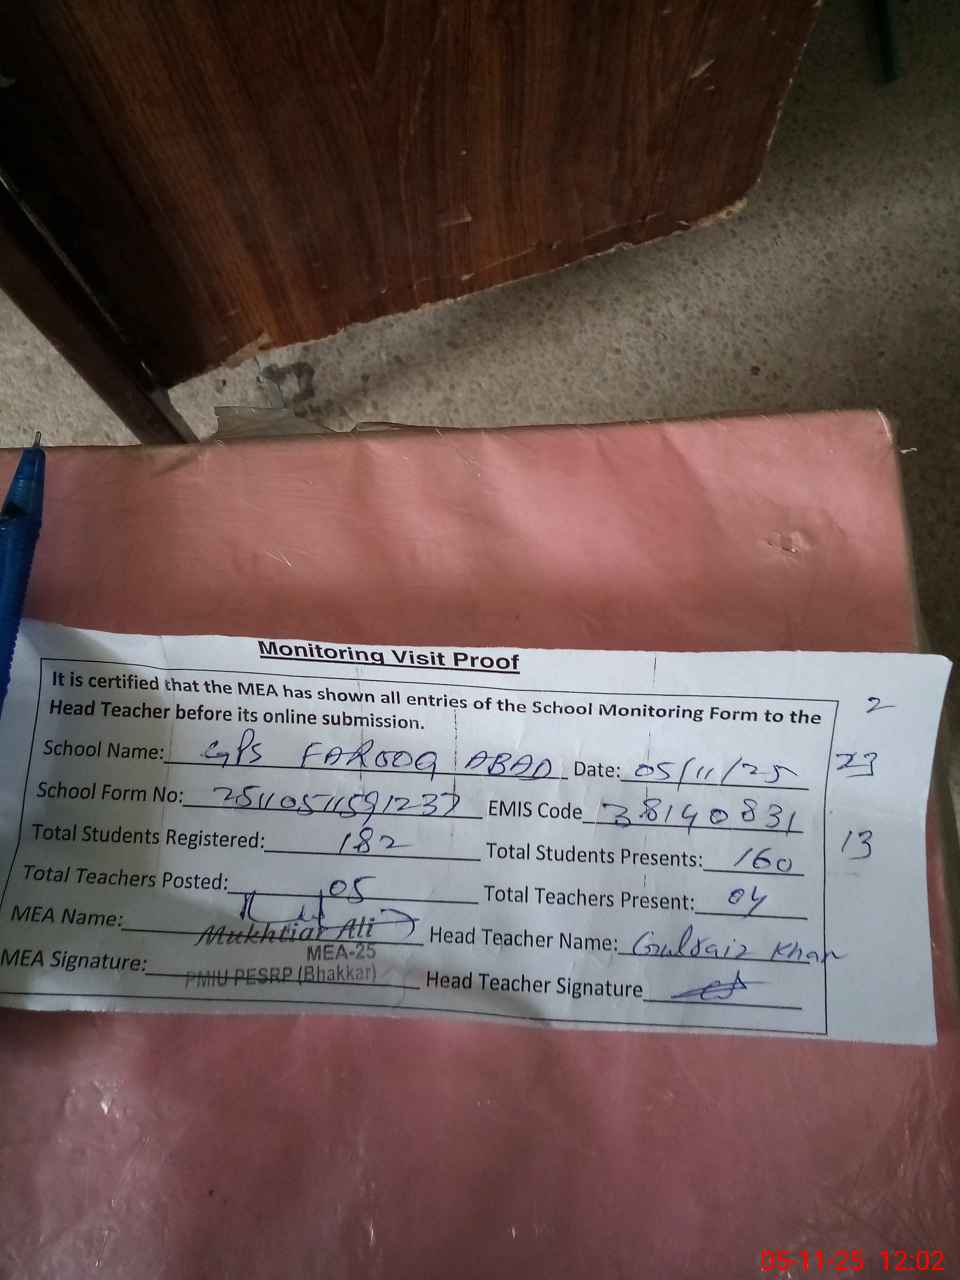 Monitoring Visit Proof
It is certified that the MEA has shown all entries of the School Monitoring Form to the
Head Teacher before its online submission.
2
School Name: GPS FAROOQ ABAD Date: 05/11/25
23
School Form No: 25110511591237 EMIS Code 38140831
Total Students Registered: 182 Total Students Presents: 160
13
Total Teachers Posted: 05 Total Teachers Present: 04
MEA Name: Mukhtiar Ali Head Teacher Name: Gulsaiz Khan
MEA-25
MEA Signature: PMIU PESRP (Bhakkar) Head Teacher Signature
05-11-25 12:02